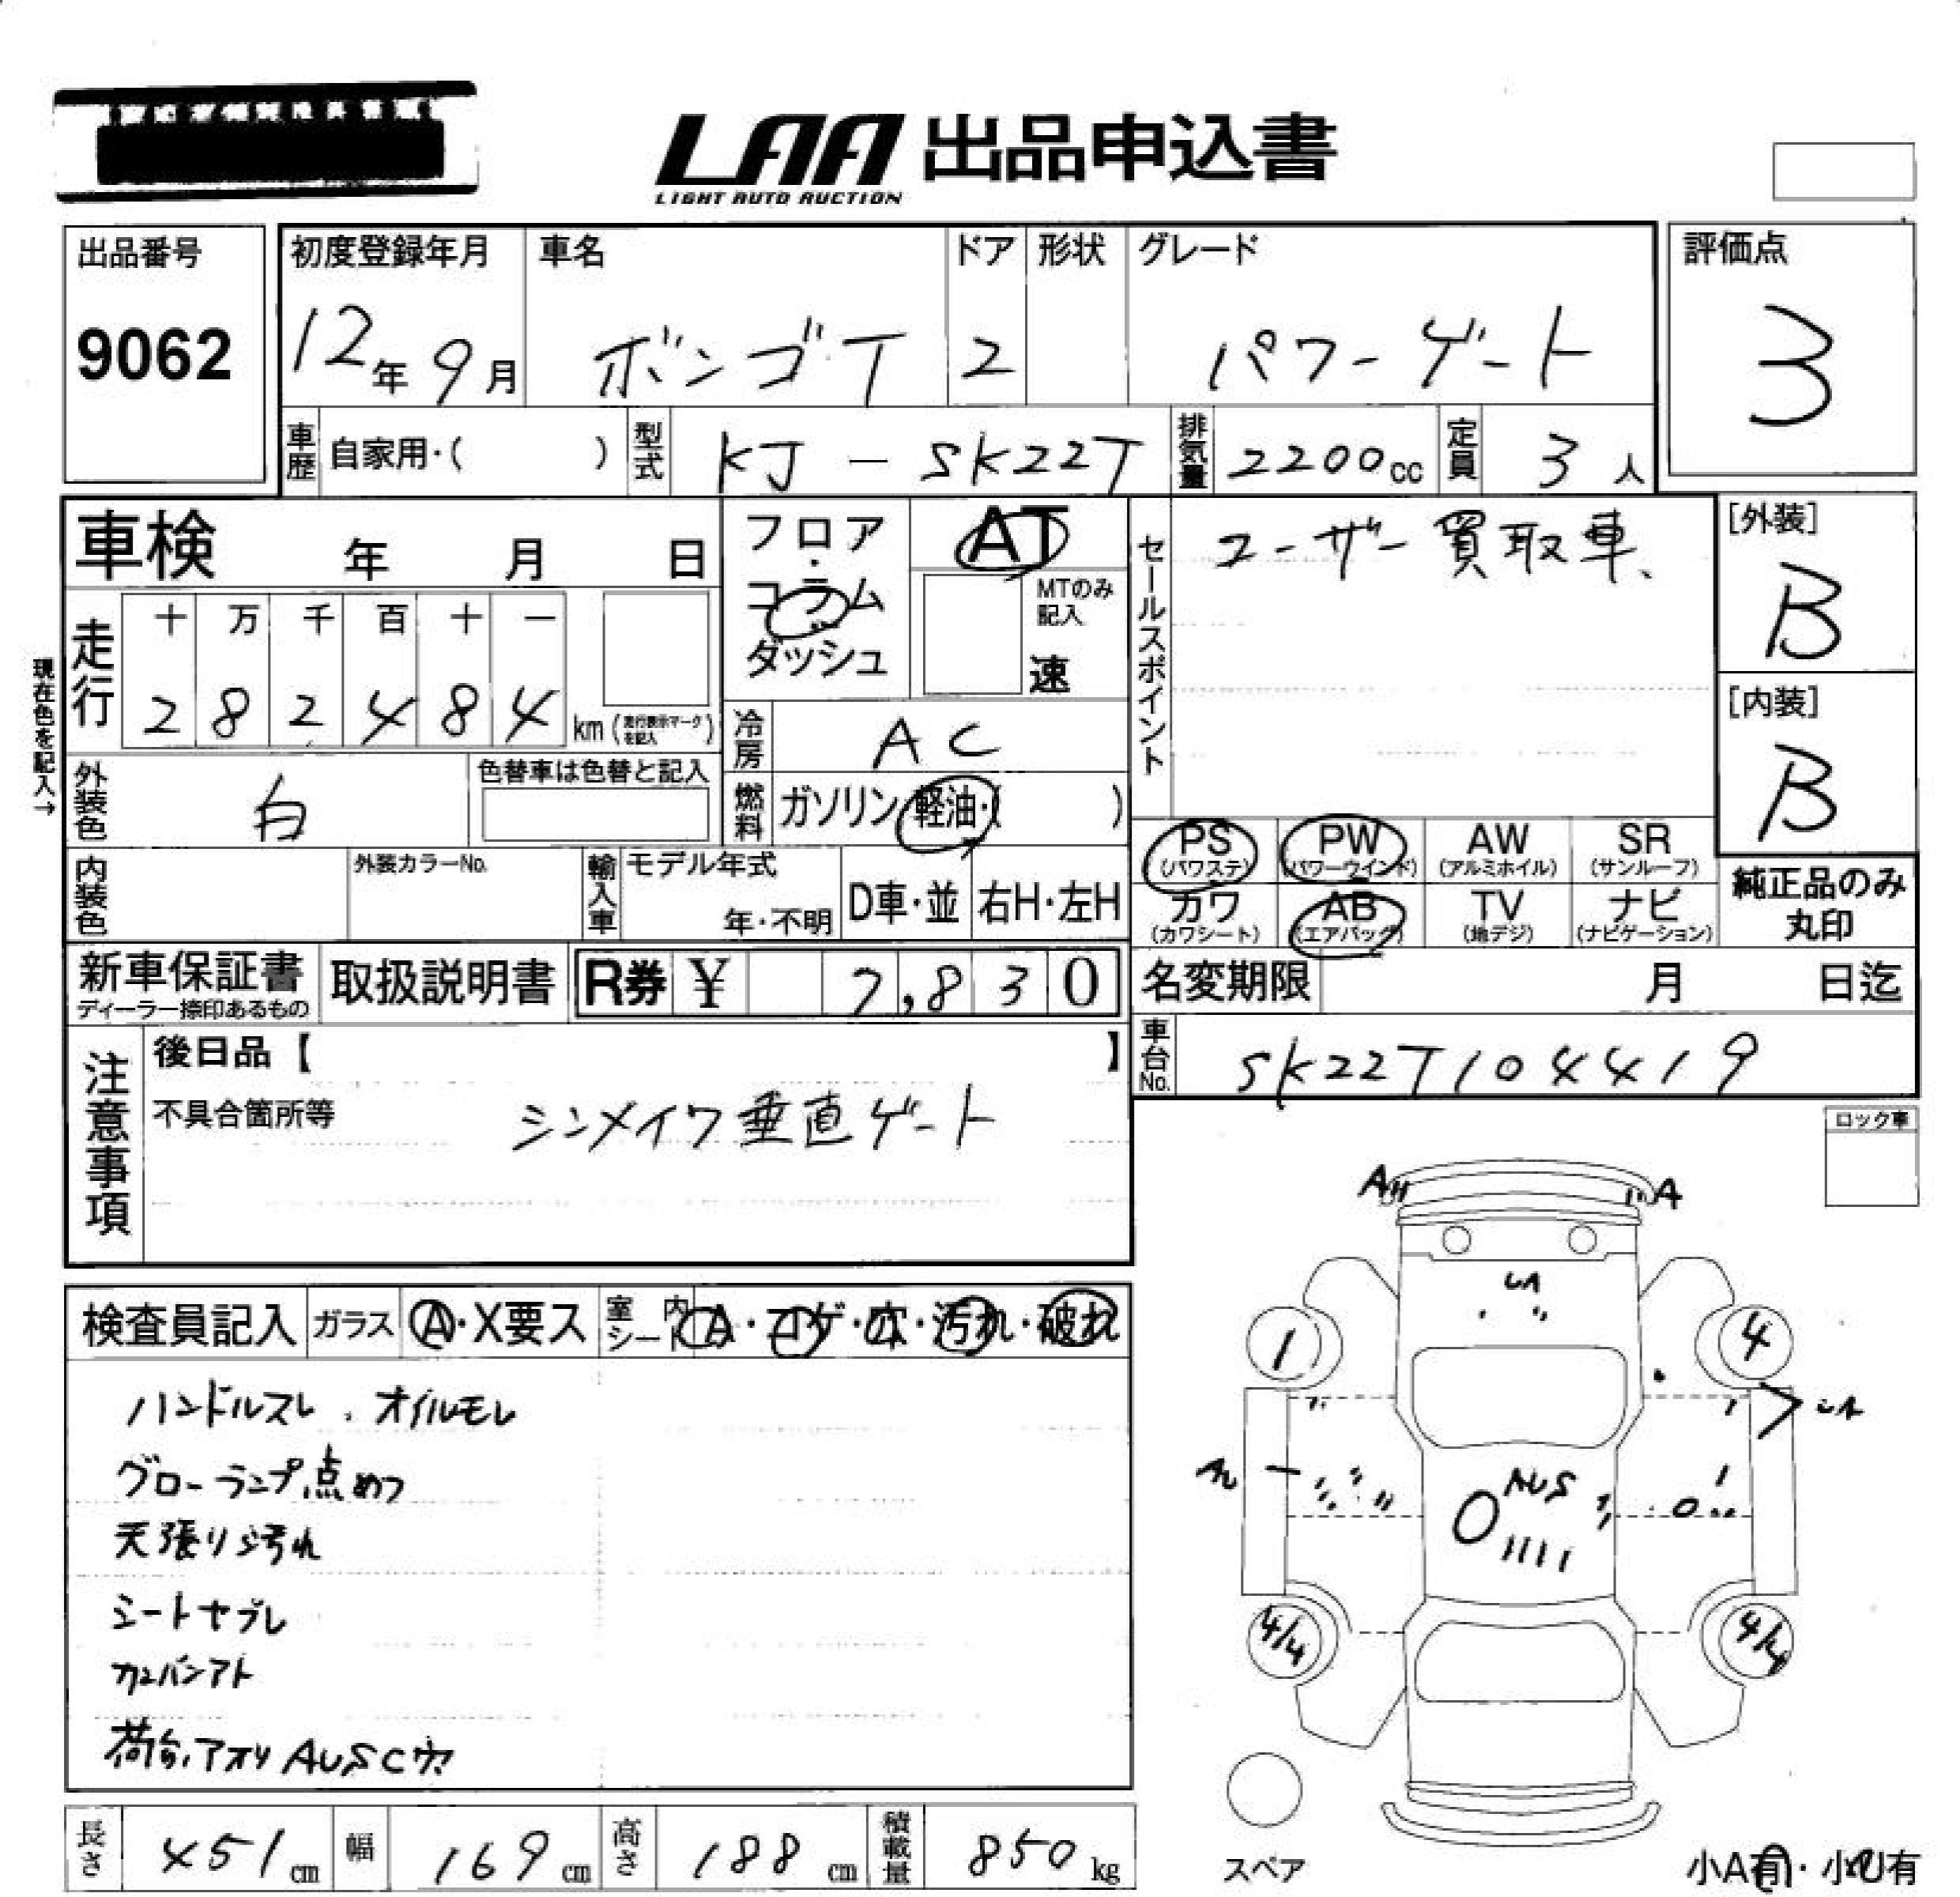 LAA 出品申込書
LIGHT AUTO AUCTION
出品番号
9062
初度登録年月
12年9月
車名
ボンゴT
ドア
2
形状
グレード
パワーゲート
評価点
3
車歴 自家用・( )
型式 KJ-SK22T
排気量 2200cc
定員 3人
車検 年 月 日
フロア・コラム・ダッシュ
AT
MTのみ記入
速
セールスポイント
ユーザー買取車、
[外装]
B
[内装]
B
現在色を記入→
走行
十 万 千 百 十 一
2 8 2 4 8 4 km (走行表示マークを記入)
冷房 AC
燃料 ガソリン・軽油・( )
外装色 白
色替車は色替と記入
内装色
外装カラーNo.
輸入車
モデル年式
年・不明
D車・並
右H・左H
PS (パワステ)
PW (パワーウインド)
AW (アルミホイル)
SR (サンルーフ)
カワ (カワシート)
AB (エアバッグ)
TV (地デジ)
ナビ (ナビゲーション)
純正品のみ丸印
新車保証書
ディーラー捺印あるもの
取扱説明書
R券 ¥ 7,830
名変期限 月 日迄
車台No. SK22T104419
注意事項
後日品【 】
不具合箇所等
シンメイワ垂直ゲート
ロック車
検査員記入
ガラス A・X要ス
室内シート A・コゲ・穴・汚れ・破れ
ハンドルスレ、オイルモレ
グローランプ点めつ
天張り汚れ
シートヤブレ
カンバンアト
荷台、アオリAUSC穴
A
A
UA
1
4
AUS
4/4
4/4
スペア
小A有・小U有
長さ 451cm
幅 169cm
高さ 188cm
積載量 850kg